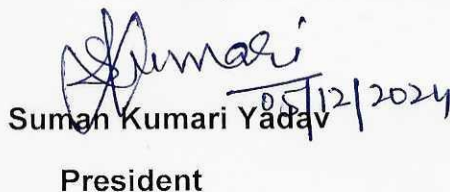 SKumari
05/12/2024
Suman Kumari Yadav
President